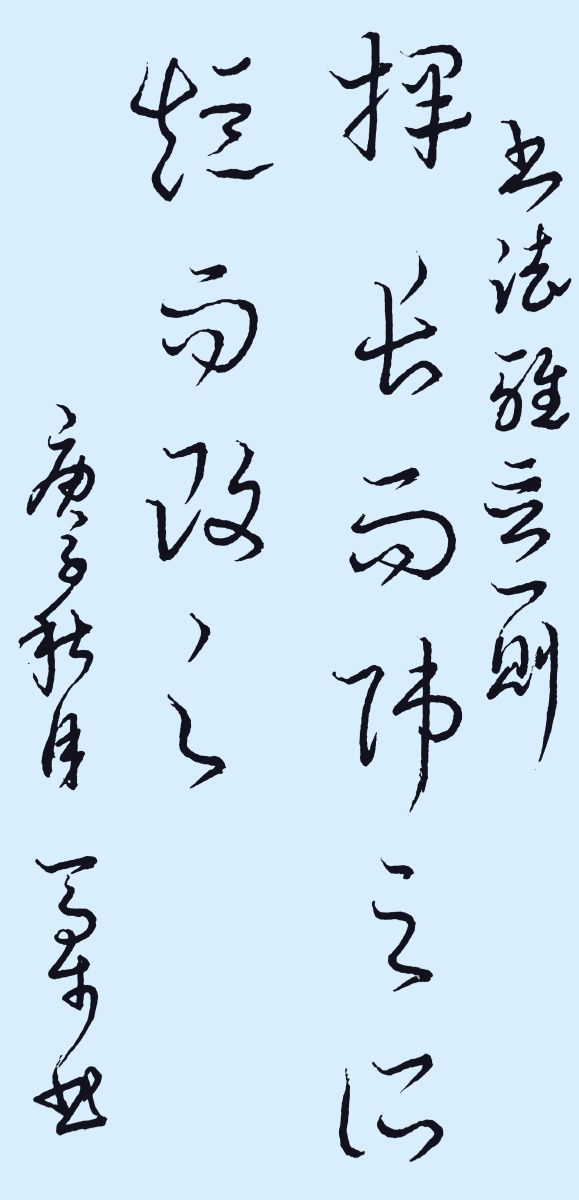 书法雅言一则
择长而师之所
短而改之
庚子秋月 书